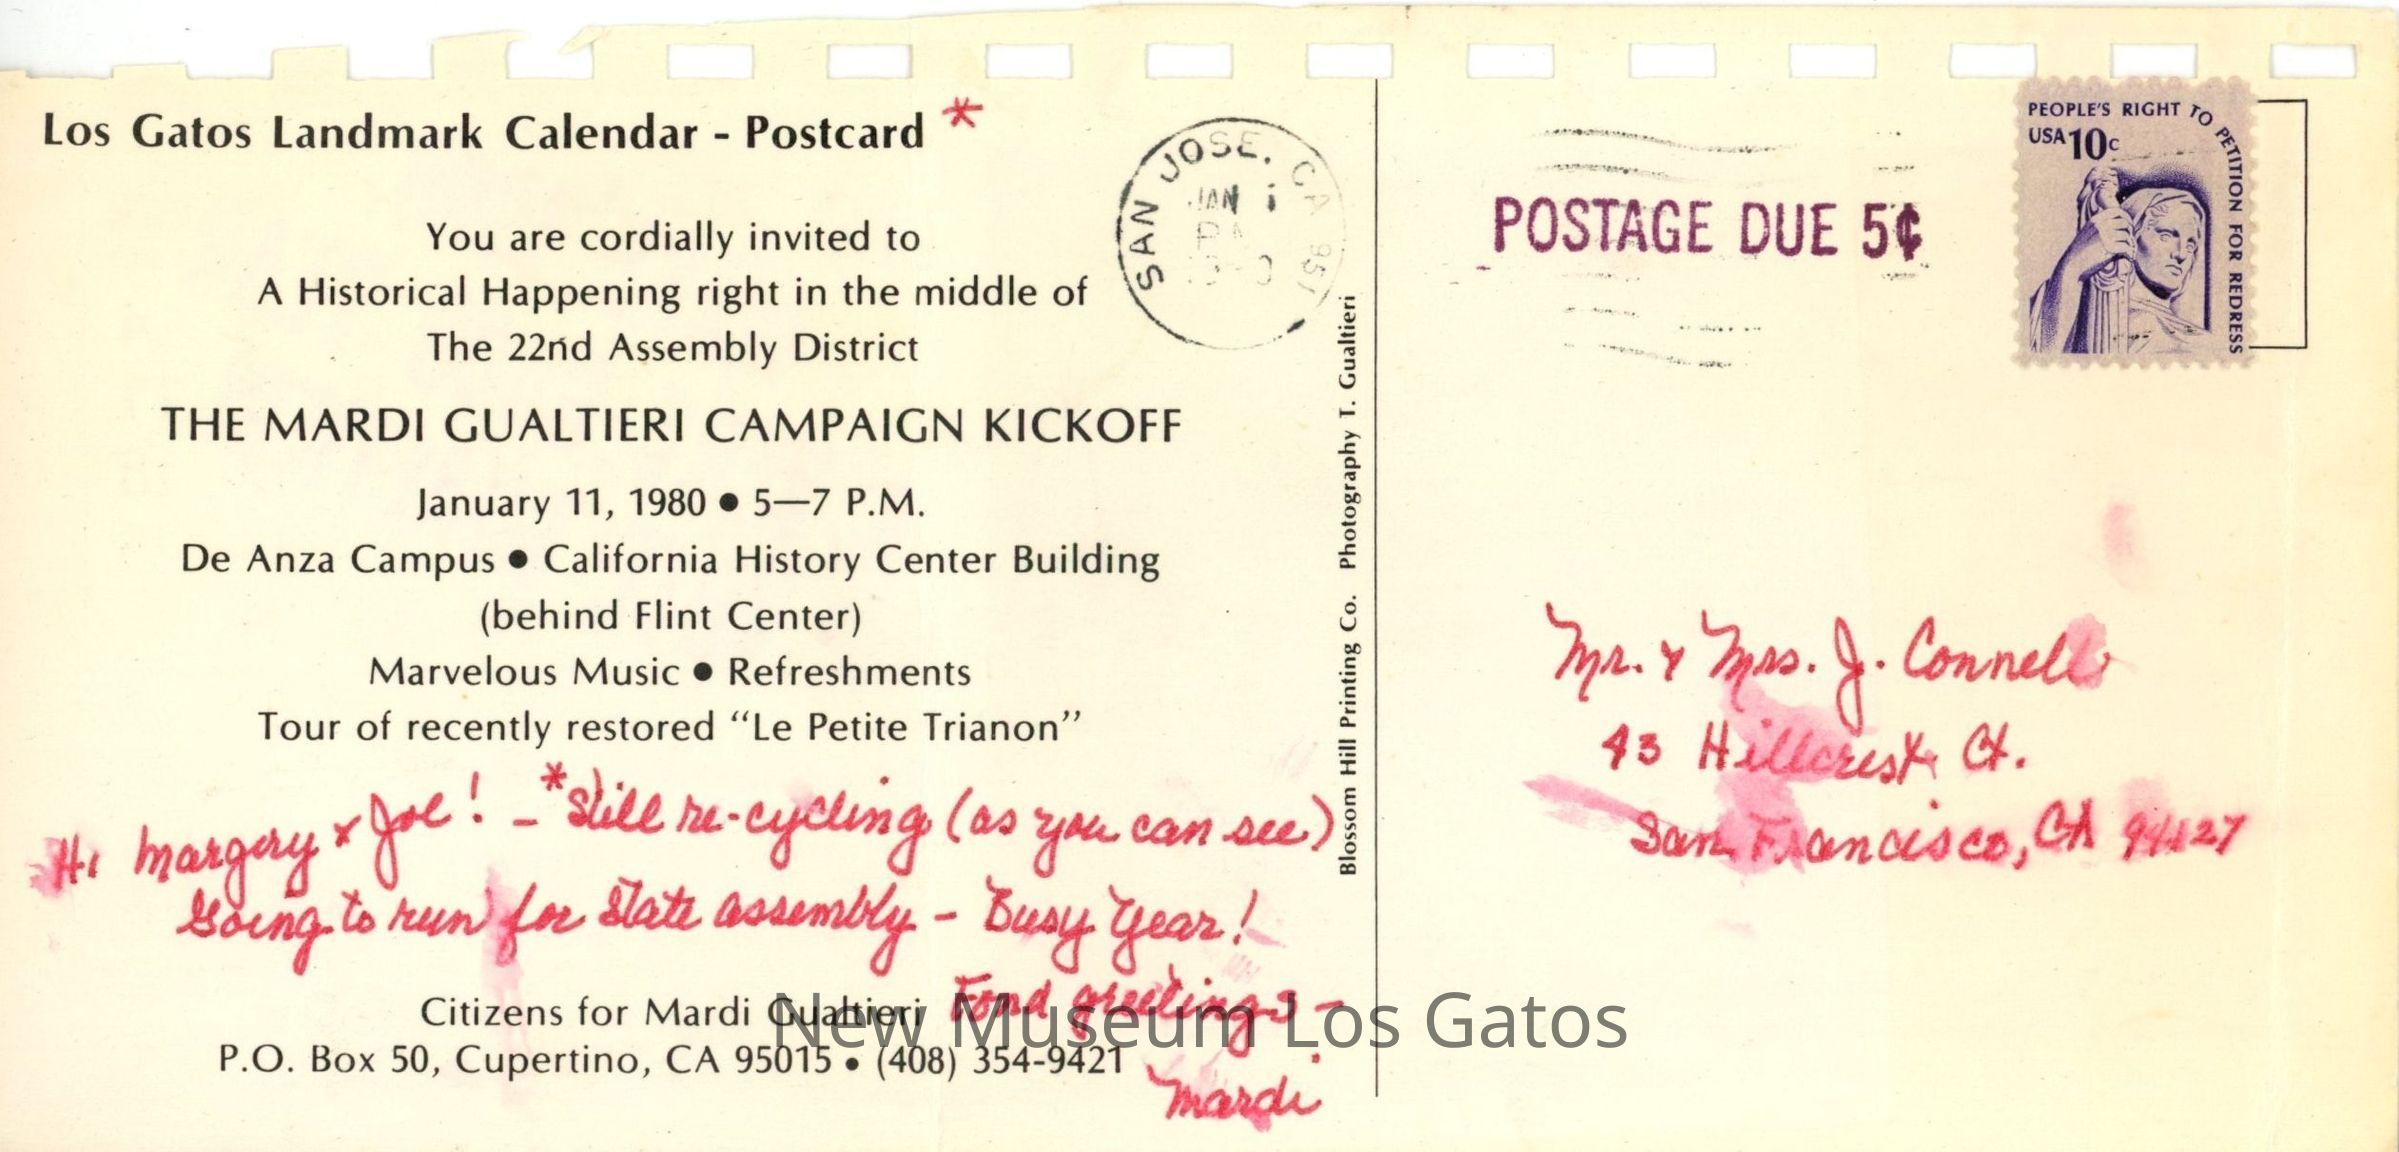 Los Gatos Landmark Calendar - Postcard *
You are cordially invited to
A Historical Happening right in the middle of
The 22nd Assembly District
THE MARDI GUALTIERI CAMPAIGN KICKOFF
January 11, 1980 • 5—7 P.M.
De Anza Campus • California History Center Building
(behind Flint Center)
Marvelous Music • Refreshments
Tour of recently restored “Le Petite Trianon”
Hi Margery & Joe! - *Still re-cycling (as you can see)
Going to run for State assembly - Busy Year!
Fond greetings -
Mardi
Citizens for Mardi Gualtieri
P.O. Box 50, Cupertino, CA 95015 • (408) 354-9421
Blossom Hill Printing Co. Photography T. Gualtieri
SAN JOSE, CA 951
JAN
PM
POSTAGE DUE 5¢
PEOPLE'S RIGHT TO PETITION FOR REDRESS
USA 10c
Mr. & Mrs. J. Connell
43 Hillcrest Ct.
San Francisco, CA 94127
New Museum Los Gatos